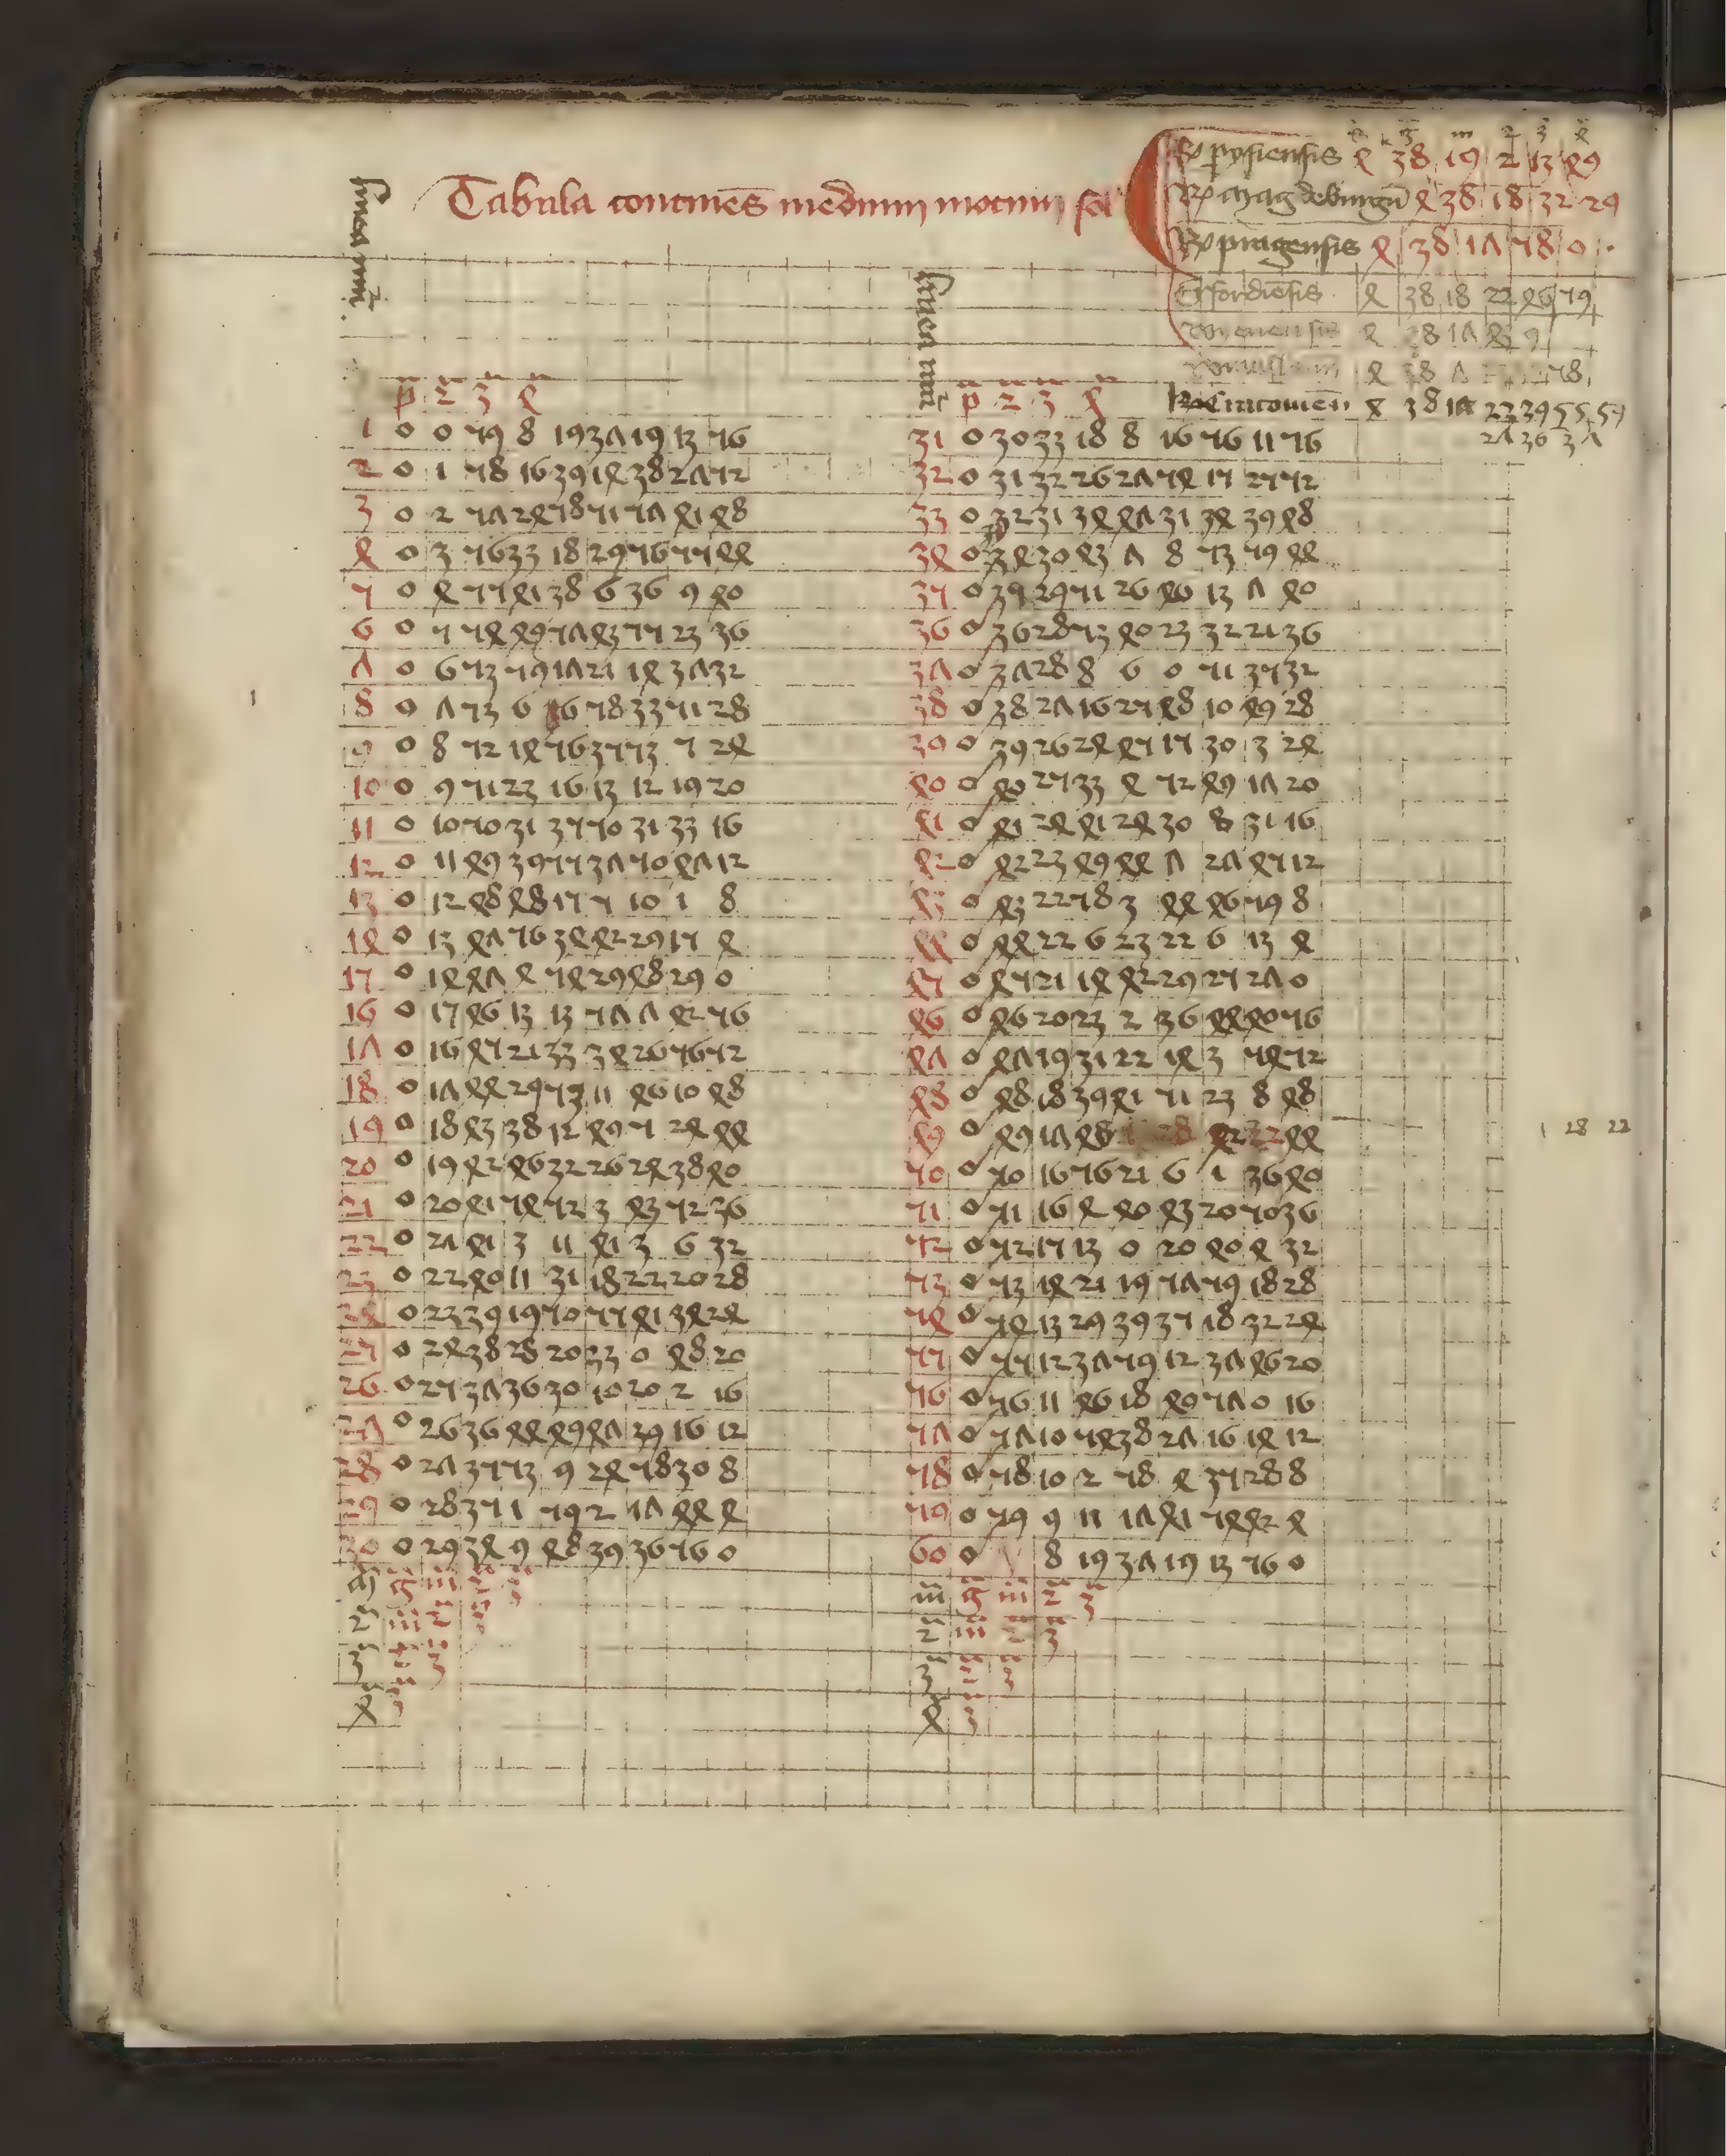 linea nūī
Tabula continēs medium motum sol
g 3 m 2 3 4
Rº pysiensis 4 38 19 2 13 49
Rº magdeburgn̄ 4 38 18 32 29
Rº pragensis 4 38 17 58 0
Erfordiēsis 4 38 18 22 46 59
4 38 17 43 9
4 38 7 58
Rº Cracouien̄ 4 38 17 22 39 55 54
27 36 37
p 2 3 4
1 0 0 59 8 19 37 19 13 56
2 0 1 58 16 39 14 38 27 52
3 0 2 57 24 58 51 57 41 48
4 0 3 56 33 18 29 56 55 44
5 0 4 55 41 38 6 36 9 40
6 0 5 54 49 57 43 55 23 36
7 0 6 53 59 17 21 14 37 32
8 0 7 53 6 36 58 33 51 28
9 0 8 52 14 56 35 53 5 24
10 0 9 51 23 16 13 12 19 20
11 0 10 50 31 35 50 31 33 16
12 0 11 49 39 55 37 50 47 12
13 0 12 48 48 15 5 10 1 8
14 0 13 47 56 34 42 29 15 4
15 0 14 47 4 54 29 48 29 0
16 0 15 46 13 13 57 7 42 56
17 0 16 45 21 33 34 26 56 52
18 0 17 44 29 53 11 46 10 48
19 0 18 43 38 12 49 5 24 44
20 0 19 42 46 32 26 24 38 40
21 0 20 41 54 52 3 43 52 36
22 0 21 41 3 11 41 3 6 32
23 0 22 40 11 31 18 22 20 28
24 0 23 39 19 50 55 41 34 24
25 0 24 38 28 20 33 0 48 20
26 0 25 37 36 30 10 20 2 16
27 0 26 36 44 49 47 39 16 12
28 0 27 35 53 9 24 58 30 8
29 0 28 35 1 59 2 17 44 4
30 0 29 34 9 48 39 36 56 0
m̄ g m 2 3
2 m 2 3
3 2 3
4 3
linea nūī
p 2 3 4
31 0 30 33 18 8 16 56 11 56
32 0 31 32 26 27 54 15 25 52
33 0 32 31 34 47 31 34 39 48
34 0 34 30 43 7 8 53 59 44
35 0 35 29 51 26 46 13 7 40
36 0 36 28 53 40 23 32 21 36
37 0 37 28 8 6 0 51 35 32
38 0 38 27 16 25 48 10 49 28
39 0 39 26 24 45 15 30 3 24
40 0 40 25 33 4 52 49 17 20
41 0 41 24 41 24 30 8 31 16
42 0 42 23 49 44 7 27 45 12
43 0 43 22 58 3 44 46 59 8
44 0 44 22 6 23 22 6 13 4
45 0 45 21 14 42 29 25 27 0
46 0 46 20 23 2 36 44 40 56
47 0 47 19 31 22 14 3 54 52
48 0 48 18 39 41 51 23 8 48
49 0 49 17 48 1 28 42 22 44
1 28 22
50 0 50 16 56 21 6 1 36 40
51 0 51 16 4 40 43 20 50 36
52 0 52 15 13 0 20 40 4 32
53 0 53 14 21 19 57 59 18 28
54 0 54 13 29 39 35 18 32 24
55 0 55 12 37 59 12 37 46 20
56 0 56 11 46 18 49 57 0 16
57 0 57 10 54 38 27 16 14 12
58 0 58 10 2 58 4 35 28 8
59 0 59 9 11 17 41 54 42 4
60 0 8 19 37 19 13 56 0
m̄ g m 2 3
2 m 2 3
3 2 3
4 3